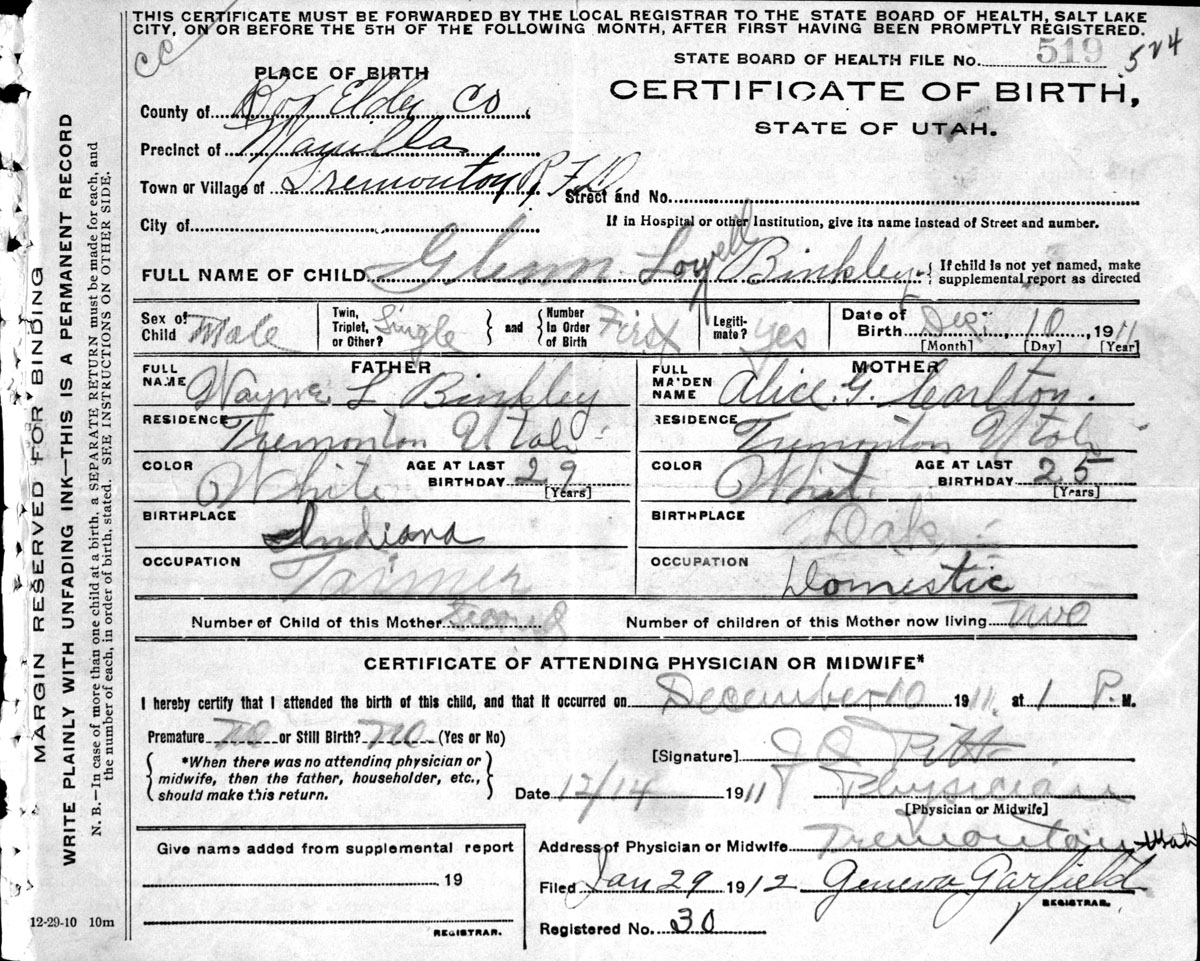 THIS CERTIFICATE MUST BE FORWARDED BY THE LOCAL REGISTRAR TO THE STATE BOARD OF HEALTH, SALT LAKE
CITY, ON OR BEFORE THE 5TH OF THE FOLLOWING MONTH, AFTER FIRST HAVING BEEN PROMPTLY REGISTERED.
CC
STATE BOARD OF HEALTH FILE No. 519 524
PLACE OF BIRTH
CERTIFICATE OF BIRTH,
STATE OF UTAH.
County of Box Elder Co
Precinct of
Town or Village of Tremonton R.F.D. Street and No.
City of
If in Hospital or other Institution, give its name instead of Street and number.
FULL NAME OF CHILD Glenn Lowell Binkley { If child is not yet named, make
supplemental report as directed
Sex of Child Male Twin, Triplet, or Other? Single } and { Number In Order of Birth First Legiti-mate? Yes Date of Birth Dec. 10, 1911
[Month] [Day] [Year]
FATHER
FULL NAME Wayne L Binkley
RESIDENCE Tremonton Utah
COLOR White AGE AT LAST BIRTHDAY 29 [Years]
BIRTHPLACE Indiana
OCCUPATION Farmer
MOTHER
FULL MAIDEN NAME Alice G. Carlton.
RESIDENCE Tremonton Utah
COLOR Whit. AGE AT LAST BIRTHDAY 25 [Years]
BIRTHPLACE Dak.
OCCUPATION Domestic
Number of Child of this Mother Second Number of children of this Mother now living Two
CERTIFICATE OF ATTENDING PHYSICIAN OR MIDWIFE*
I hereby certify that I attended the birth of this child, and that it occurred on December 10 1911. at 1 P. M.
Premature no or Still Birth? no (Yes or No)
{ *When there was no attending physician or
midwife, then the father, householder, etc.,
should make this return. }
[Signature] Pitt
Date 12/14 1911 Physician
[Physician or Midwife]
Address of Physician or Midwife Tremonton Utah
Filed Jan 29 1912 Geneva Garfield
REGISTRAR.
Registered No. 30
Give name added from supplemental report
19
REGISTRAR.
12-29-10 10m
MARGIN RESERVED FOR BINDING
WRITE PLAINLY WITH UNFADING INK—THIS IS A PERMANENT RECORD
N. B.—In case of more than one child at a birth, a SEPARATE RETURN must be made for each, and
the number of each, in order of birth, stated. SEE INSTRUCTIONS ON OTHER SIDE.